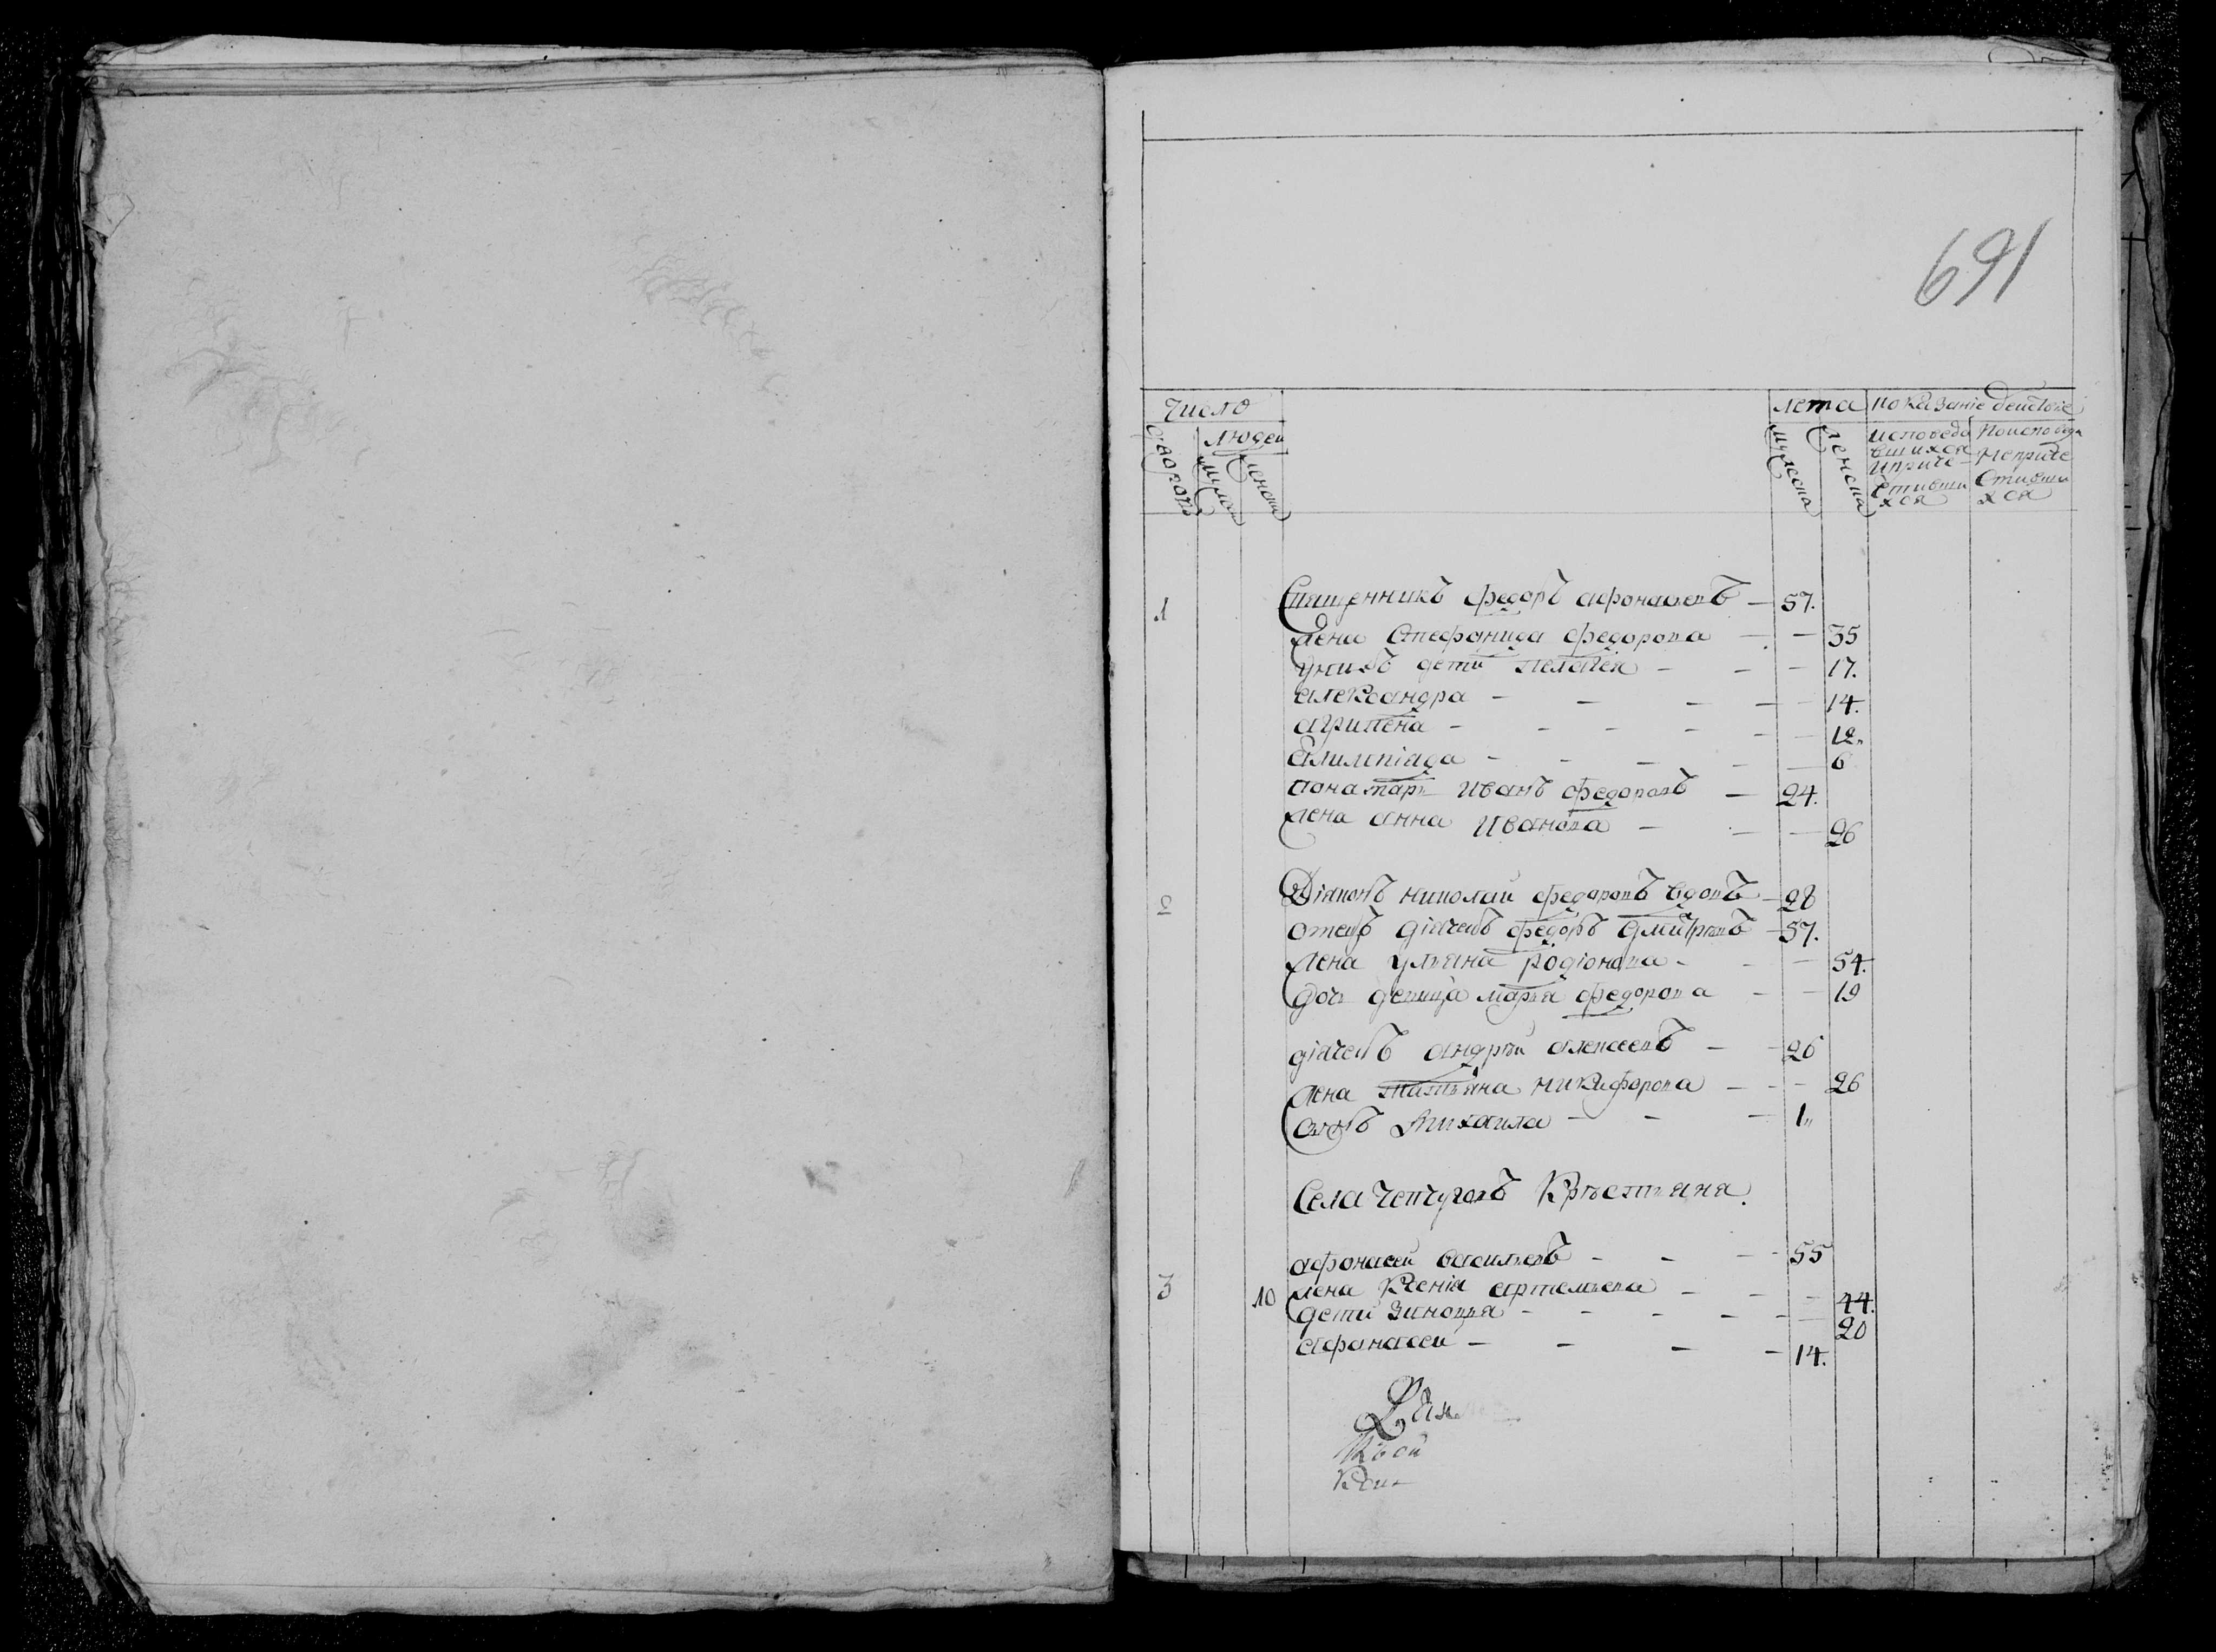 691
Число
лета
показание действие
дворовъ
людей
мужеска
женска
мужеска
женска
исповеда
вшихся
иприче
стивши
хся
Поисповеда
Неприче
стивши
хся
1 Священникъ федоръ афонасьевъ — 57.
жена Стефанида федорова — — 35
униxъ дети пелагея — — 17.
александра — — — 14.
агрипена — — — 12
алимпiада — — — 6
понамарь иванъ федоровъ — 24.
жена анна иванова — — 26
2 Дiаконъ николаи федоровъ вдовъ — 28
отецъ дiячекъ федоръ дмитревъ — 57.
жена ульяна родiонова — — 54.
дочь девица марья федорова — — 19
дiячекъ андрѣи алексеевъ — — 26
жена татьяна никифорова — — 26
сынъ михаила — — 1
Села Чепчуговъ Крѣстьяня.
афонасеи васильевъ — — 55
3 10 жена Ксенiя артемьева — — 44.
дети зиновья — — — 20
афанасеи — — — 14.